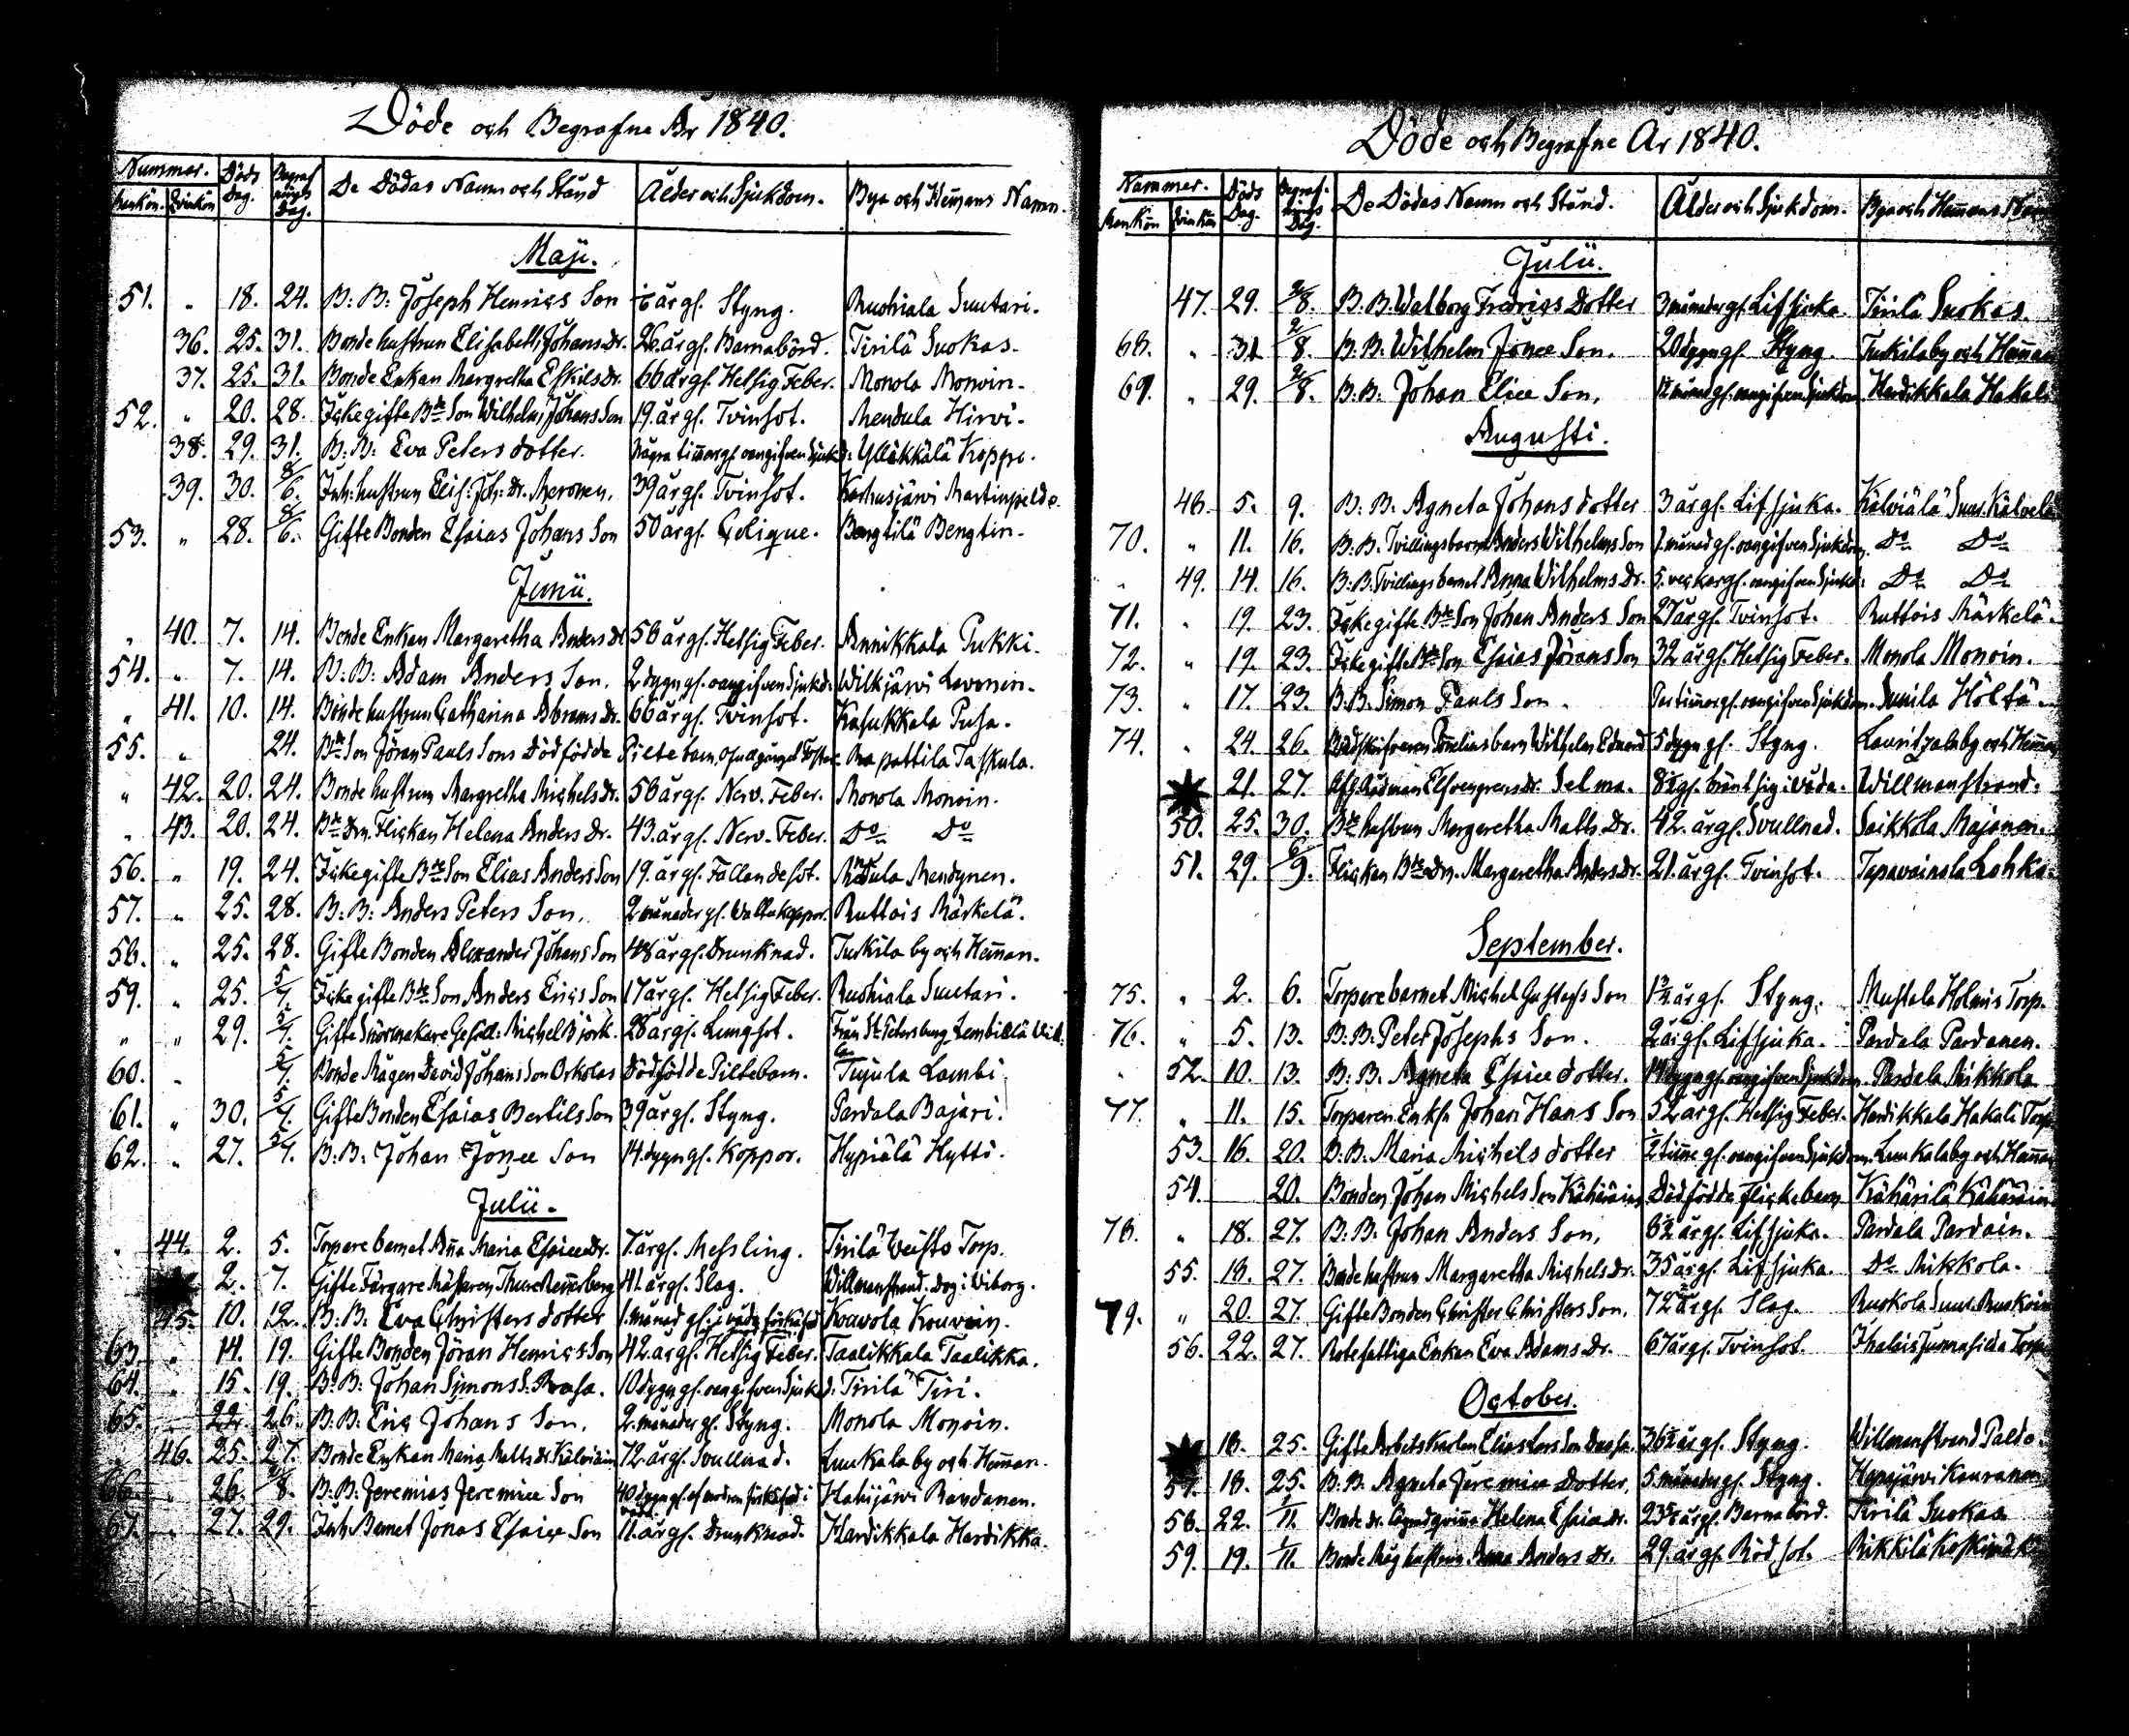 Döde och Begrafne År 1840.
Nummer. Döds Dag. Begrafnings Dag. De Dödas Namn och Stånd Ålder och Sjukdom. Bya och Hem̄ans Namn.
Mankön. Qvinkön
Maji.
51. " 18. 24. B: B: Joseph Henrics Son årgl. Styng. Ruohiala Suutari.
36. 25. 31. Bonde hustrun Elisabeth Johans Dr. 26. årgl. Barnabörd. Tirilä Suokas.
37. 25. 31. Bonde Enkan Margretha Eskils Dr. 66 årgl. Hetsig Feber. Monola Monoin.
52. " 20. 28. Icke gifte Bde Son Wilhelm Johans Son 19. årgl. Tvinsot. Mendula Hirvi.
38. 29. 31. B: B: Eva Peters dotter. Några tim̄ar gl. oangifven Sjukd: Ylläkkälä Koppi.
39. 30. 8/6. Inh: hustrun Elis: Joh: Dr. Meronen. 39 årgl. Tvinsot. Karhusjärvi Martinpeldo.
53. " 28. 8/6. Gifte Bonden Esaias Johans Son 50 årgl. Colique. Bengtilä Bengtin.
Junii.
" 40. 7. 14. Bonde Enkan Margaretha Anders Dr 56 årgl. Hetsig Feber. Annikkala Pukki.
54. " 7. 14. B: B: Adam Anders Son. 2 dygn gl. oangifven Sjukd: Wilkjärvi Lavonen.
" 41. 10. 14. Bonde hustrun Catharina Abrams Dr. 66 årgl. Tvinsot. Kasukkala Pusa.
55. " 24. Bde Son Jöran Pauls Sons Dödfödde Piltebarn, Rapattila Taskula.
" 42. 20. 24. Bonde hustrun Margretha Michels Dr. 56 årgl. Nerv. Feber. Monola Monoin.
" 43. 20. 24. Bde Drn. Flickan Helena Anders Dr. 43. årgl. Nerv. Feber. Do Do
56. " 19. 24. Icke gifte Bde Son Elias Anders Son 19. årgl. Fallandesot. Mendula Mendynen.
57. " 25. 28. B: B: Anders Peters Son. 2 månader gl. Wattukoppor. Ruttois Märkelä.
58. " 25. 28. Gifte Bonden Alexander Johans Son 48 årgl. Drunknad. Tuskila by och Hem̄an.
59. " 25. 5/7. Icke gifte Bde Son Anders Erics Son 17 årgl. Hetsig Feber. Ruohiala Suutari.
" " 29. 5/7. Gifte Snörmakare Gesäll: Michel Björk. 28 årgl. Lungsot. Från St. Petersburg
60. " 5/7. Bonde Mågen David Johans Son Orkolas Dödfödde Piltebarn. Tujula Lambi.
61. " 30. 5/7. Gifte Bonden Esaias Bertils Son 39 årgl. Styng. Pardala Bajari.
62. " 27. 5/7. B: B: Johan Jonæ Son 14. dygn gl. Koppor. Hypiälä Hytti.
Julii.
" 44. 2. 5. Torpare barnet An̄a Maria Esaiæ Dr. 7. årgl. Messling. Tirilä Torp.
2. 7. Gifte Färgare Mästaren Thure 41. årgl. Slag. Willmanstrand. dog i Wiborg.
45. 10. 12. B: B: Eva Christers dotter 1. månad gl. i våda förkäfd Kouvola Kouvoin.
63. " 14. 19. Gifte Bonden Jöran Henrics Son 42. årgl. Hetsig Feber. Taalikkala Taalikka.
64. " 15. 19. B: B: Johan Simons S. Rasa. 10 dygn gl. oangifven Sjukd: Tirilä Tiri.
65. " 22. 26. B: B: Eric Johans Son. 2. månader gl. Styng. Monola Monoin.
46. 25. 27. Bonde Enkan Maria Matts Dr Kälviäin 72. årgl. Svullnad. Luukala by och Hem̄an.
66. " 26. 2/8. B: B: Jeremias Jeremiæ Son 40 dygn gl. af modren förkäfd i våda. Hakijärvi Bandanen.
67. " 27. 29. Inh. Barnet Jonas Esaiæ Son 11. årgl. Drunknad. Hardikkala Hardikka.
Döde och Begrafne År 1840.
Nummer. Döds Dag. Begrafnings Dag. De Dödas Namn och Stånd. Ålder och Sjukdom. Bya och Hem̄ans Namn
Mankön Qvinkön
Julii.
47. 29. 2/8. B. B. Walborg Fredrics Dotter 3 månader gl. Lifsjuka. Tirilä Suokas.
68. " 31 2/8. B. B. Wilhelm Jonæ Son. 20 dygn gl. Styng. Tuskila by och Hem̄an
69. " 29. 2/8. B. B. Johan Eliæ Son. månad gl. oangifven Sjukdom Hardikkala Hakali
Augusti.
48. 5. 9. B: B. Agneta Johans dotter 3 årgl. Lifsjuka. Kälviälä Kälvelä
70. " 11. 16. B: B. Tvillingsbarnet Anders Wilhelms Son 1. månad gl. oangifven Sjukdom. Do Do
" 49. 14. 16. B: B. Tvillingsbarnet Anna Wilhelms Dr. 5. veckor gl. oangifven Sjukd: Do Do
71. " 19. 23. Icke gifte Bde Son Johan Anders Son 27 årgl. Tvinsot. Ruttois Märkelä.
72. " 19. 23. Icke gifte Bde Son Esaias Jörans Son 32 årgl. Hetsig Feber. Monola Monoin.
73. " 17. 23. B. B. Simon Pauls Son. Par tim̄ar gl. oangifven Sjukdom. Sunila Höltä.
74. " 24. 26. barn Wilhelm Eduard 5 dygn gl. Styng. Lauritzala by och Hem̄an
21. 27. Rådman Elfvengrens dr. Selma. 8½ gl. bränt sig i våda. Willmanstrand.
50. 25. 30. Bde hustrun Margaretha Matts Dr. 42. årgl. Svullnad. Saikkola Majanen.
51. 29. 6/9. Flickan Bde Drn. Margaretha Anders Dr. 21. årgl. Tvinsot. Tapavainola Lohko.
September.
75. " 2. 6. Torparebarnet Michel Gustafs Son årgl. Styng. Mustola Holmis Torp.
76. " 5. 13. B: B: Peter Josephs Son. 2 årgl. Lifsjuka. Pardala Pardanen.
" 52. 10. 13. B: B. Agneta Esaiæ dotter. 14 dygn gl. oangifven Sjukdom. Pardala Mikkola
77. " 11. 15. Torparen Enkl. Johan Hans Son 52 årgl. Hetsig Feber. Hardikkala Hakali Torp
53. 16. 20. B. B. Maria Michels dotter ½ tim̄e gl. oangifven Sjukdom. Luukala by och Hem̄an
54. 20. Bonden Johan Michels Son Kähäräin Dödfödde Flickebarn Kähärilä Kähäräin
78. " 18. 27. B. B. Johan Anders Son. 6½ årgl. Lifsjuka. Pardala Pardain.
55. 18. 27. Bonde hustrun Margaretha Michels Dr. 35 årgl. Lifsjuka. Do Mikkola.
79. " 20. 27. Gifte Bonden Christer Christers Son. 72 årgl. Slag. Ruokola Ruokoin
56. 22. 27. Rotefattiga Enkan Eva Adams Dr. 67 årgl. Tvinsot. Ihalais Torp
October.
18. 25. Gifte Arbetskarlen Elias Lars Son 36½ årgl. Styng. Willmanstrand Paldo.
57. 18. 25. B. B. Agneta Jeremiæ Dotter. 5. månader gl. Styng. Hapajärvi Kauranen
58. 22. 1/11. Bonde dr. Helena Esaiæ dr. årgl. Barnabörd. Tirilä Suokas
59. 19. 1/11. Bonde Måg hustrun Anna Anders Dr. 29. årgl. Rödsot. Rikkilä